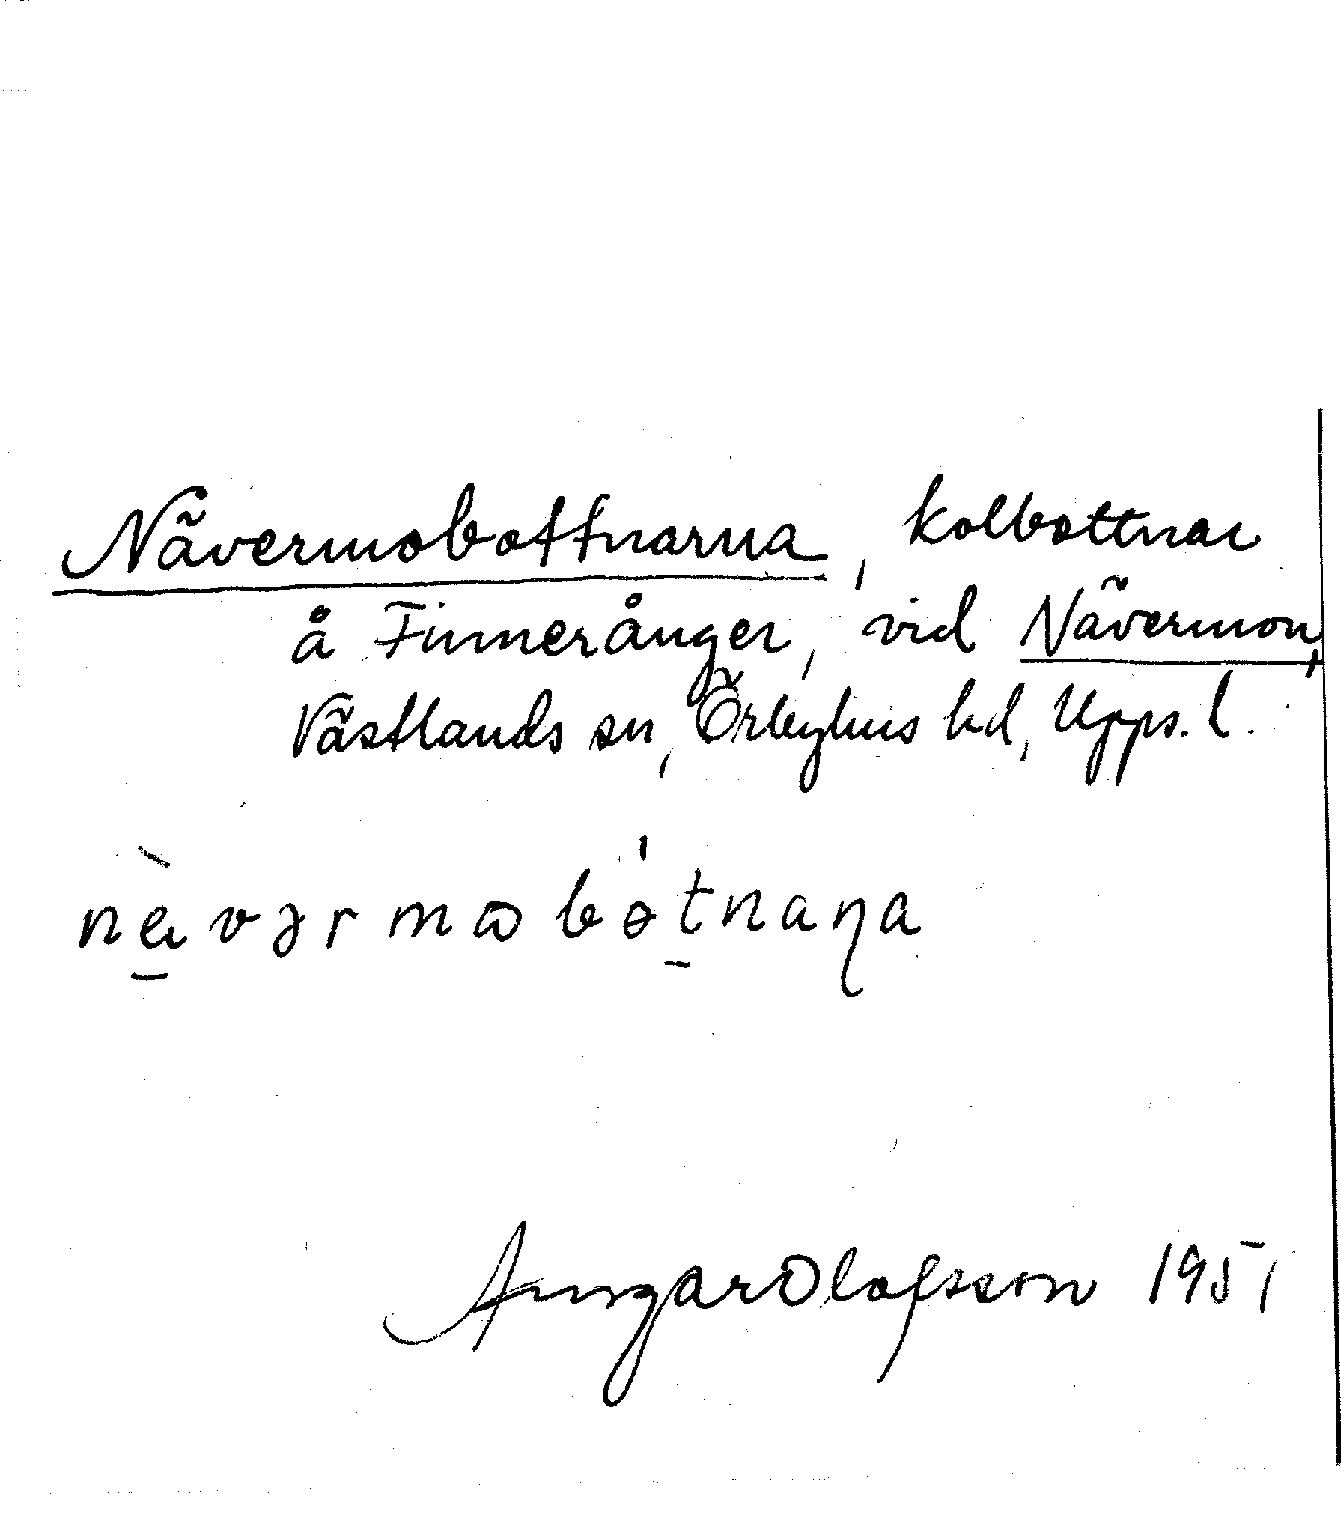 Nävermobottnarna, kolbottnar
å Finnerånger, vid Nävermon,
Västlands sn, Örbyhus hd, Upps. l.
Ansgar Olofsson 1951